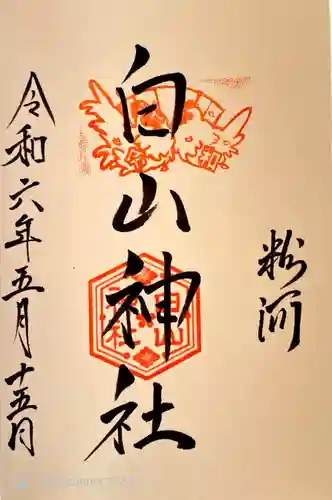 粉河
白山神社
令和六年五月十五日